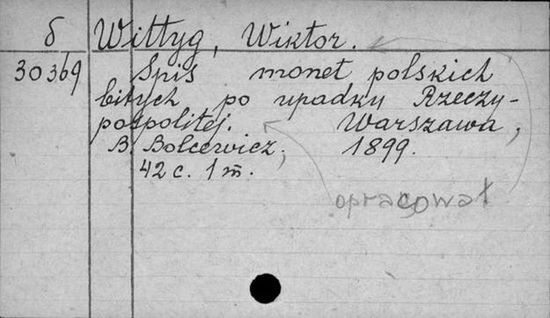 б Wittyg, Wiktor.
30369 Spis monet polskich
bitych po upadku Rzeczy-
pospolitej. Warszawa,
B. Bolcewicz, 1899.
42 c. 1 m.
opracował